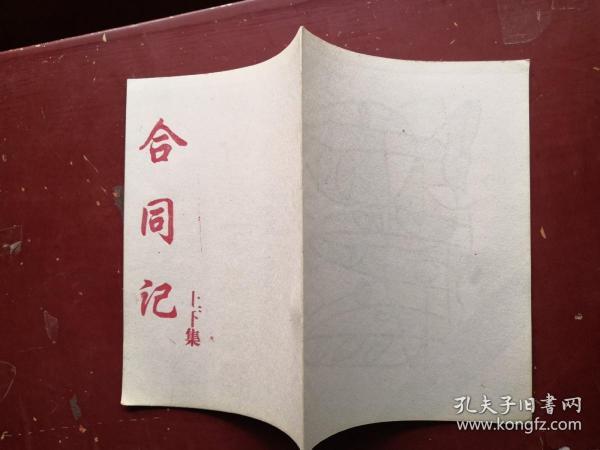 合同记
上下集
孔夫子旧書网
www.kongfz.com